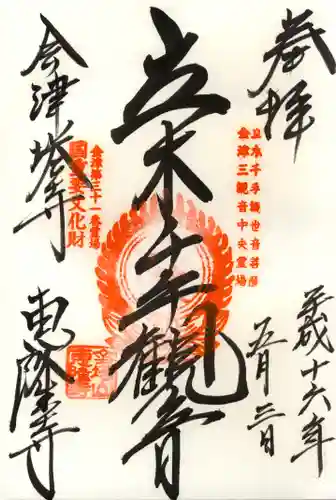 奉拝
平成十六年
五月三日
立木千手観世音菩薩
会津三観音中央霊場
立木千手観音
会津三十一番霊場
国重要文化財
会津塔寺
恵隆寺